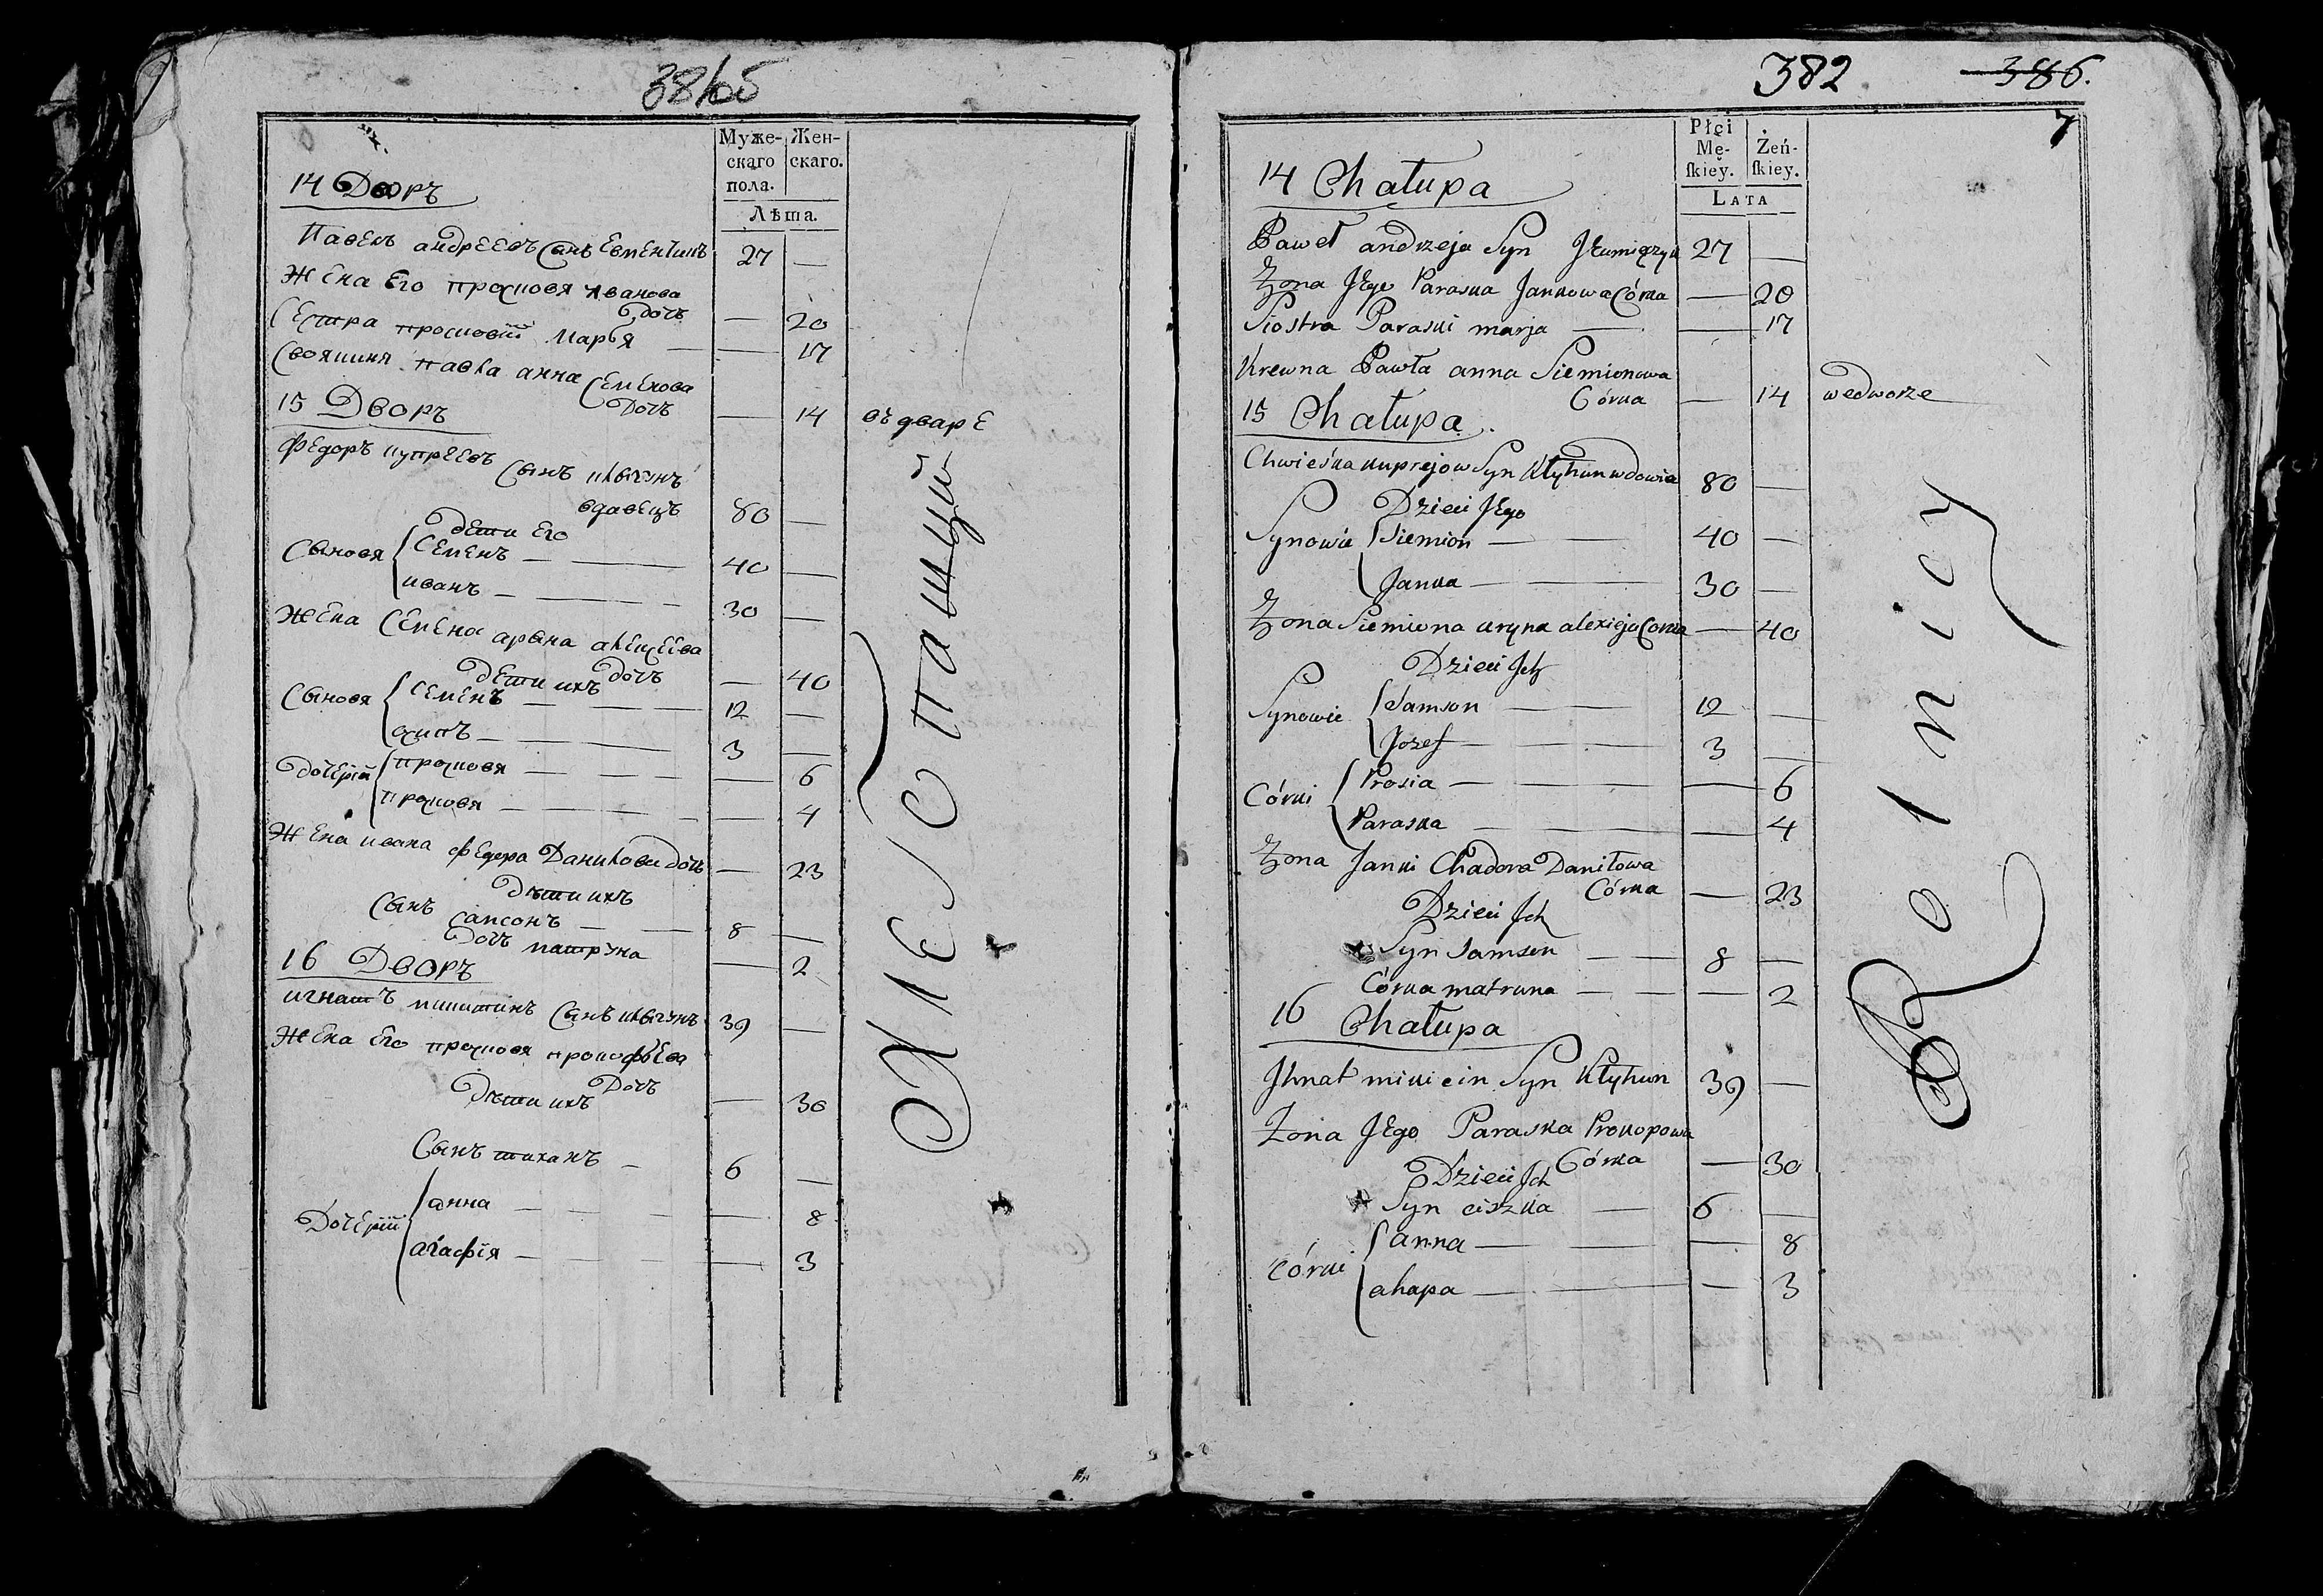 381об
Муже-
скаго
пола.
Жен-
скаго.
Лѣта.
14 Дворъ
Павелъ андреевъ Сынъ 27 —
Жена Его прасковя иванова
дочь — 20
Сестра прасковiи Марья — — 17
Свояшиня павла анна Семенова
Дочь — 14 въ дваре
15 Дворъ
федоръ купреевъ Сынъ клыгунъ
вдавецъ 80 —
дети Его
Сыновя { Семенъ — — 40 —
иванъ — — 30 —
Жена Семена арына алексеева
дочь — 40
дети ихъ
Сыновя { Семенъ — — 12 —
осипъ — — 3 —
Дочерiи { прасковя — — 6
прасковя — — 4
Жена ивана федора Данилова дочь — 23
Дети ихъ
Сынъ самсонъ — — 8 —
Дочь матруна — 2
16 Дворъ
игнатъ микитинъ Сынъ клыгунъ 39 —
Жена Его прасковя прокофьева
Дочь — 30
Дети ихъ
Сынъ тиханъ — 6 —
Дочерiи { анна — — 8
агафiя — — 3
Хлебопашцы
382 386.
7
Płci
Mę-
skiey.
Żeń-
skiey.
LATA
14 Chałupa
Paweł andrzeja Syn 27 —
Żona Jego Paraska Jankowa Córka — 20
Siostra Paraski marja — — 17
Krewna Pawła anna Siemionowa
Córka — 14 wedworze
15 Chałupa
Chwieśka kuprejow Syn Kłyhun wdowiec 80 —
Dzieci Jego
Synowie { Siemion — — 40 —
Janka — — 30 —
Żona Siemiona aryna alexieja Corka — 40
Dzieci Ich
Synowie { Samson — — 12 —
Jozef — — 3 —
Córki { Prosia — — 6
Paraska — — 4
Żona Janki Chadora Daniłowa
Córka — 23
Dzieci Jch
Syn Samson — — 8 —
Córka matruna — — — 2
16 Chałupa
Jhnat mikicin Syn Kłyhun 39 —
Żona Jego Paraska Prokopowa
Córka — 30
Dzieci Jch
Syn ciszka — 6 —
Córki { anna — — — 8
ahapa — — — 3
Rolnicy